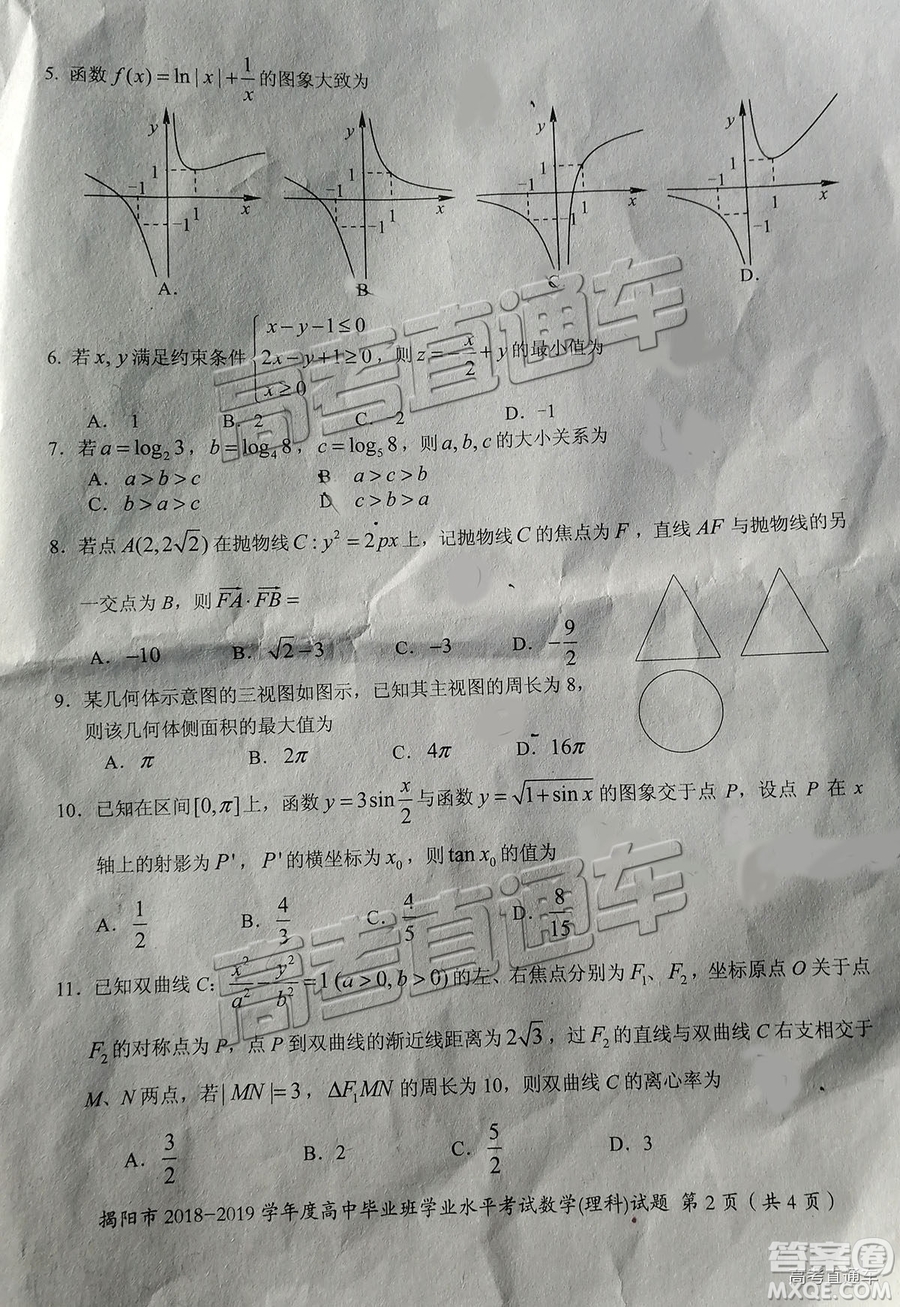 5. 函数 f(x)=ln|x|+1/x 的图象大致为
y y y y
1 -1 -1 1 x
1 -1 -1 1 x
1 -1 -1 1 x
1 -1 -1 1 x
A. B C D.
6. 若 x, y 满足约束条件 { x-y-1≤0 2x-y+1≥0, x≥0 则 z=-x/2+y 的最小值为
A. 1 B. 2 C. 2 D. -1
7. 若 a=log₂3, b=log₄8, c=log₅8, 则 a,b,c 的大小关系为
A. a>b>c B a>c>b
C. b>a>c D c>b>a
8. 若点 A(2,2√2) 在抛物线 C:y²=2px 上，记抛物线 C 的焦点为 F，直线 AF 与抛物线的另
一交点为 B，则 FA·FB=
A. -10 B. √2-3 C. -3 D. -9/2
9. 某几何体示意图的三视图如图示，已知其主视图的周长为 8，
则该几何体侧面积的最大值为
A. π B. 2π C. 4π D. 16π
10. 已知在区间[0,π]上，函数 y=3sin x/2 与函数 y=√(1+sin x) 的图象交于点 P，设点 P 在 x
轴上的射影为 P'，P' 的横坐标为 x₀，则 tan x₀ 的值为
A. 1/2 B. 4/3 C. 4/5 D. 8/15
11. 已知双曲线 C: x²/a²-y²/b²=1(a>0,b>0) 的左、右焦点分别为 F₁、F₂，坐标原点 O 关于点
F₂ 的对称点为 P，点 P 到双曲线的渐近线距离为 2√3，过 F₂ 的直线与双曲线 C 右支相交于
M、N 两点，若|MN|=3，ΔF₁MN 的周长为 10，则双曲线 C 的离心率为
A. 3/2 B. 2 C. 5/2 D. 3
揭阳市 2018-2019 学年度高中毕业班学业水平考试数学(理科)试题 第 2 页（共 4 页）
高考直通车
高考直通车
答案圈
高考直通车
MXQE.COM